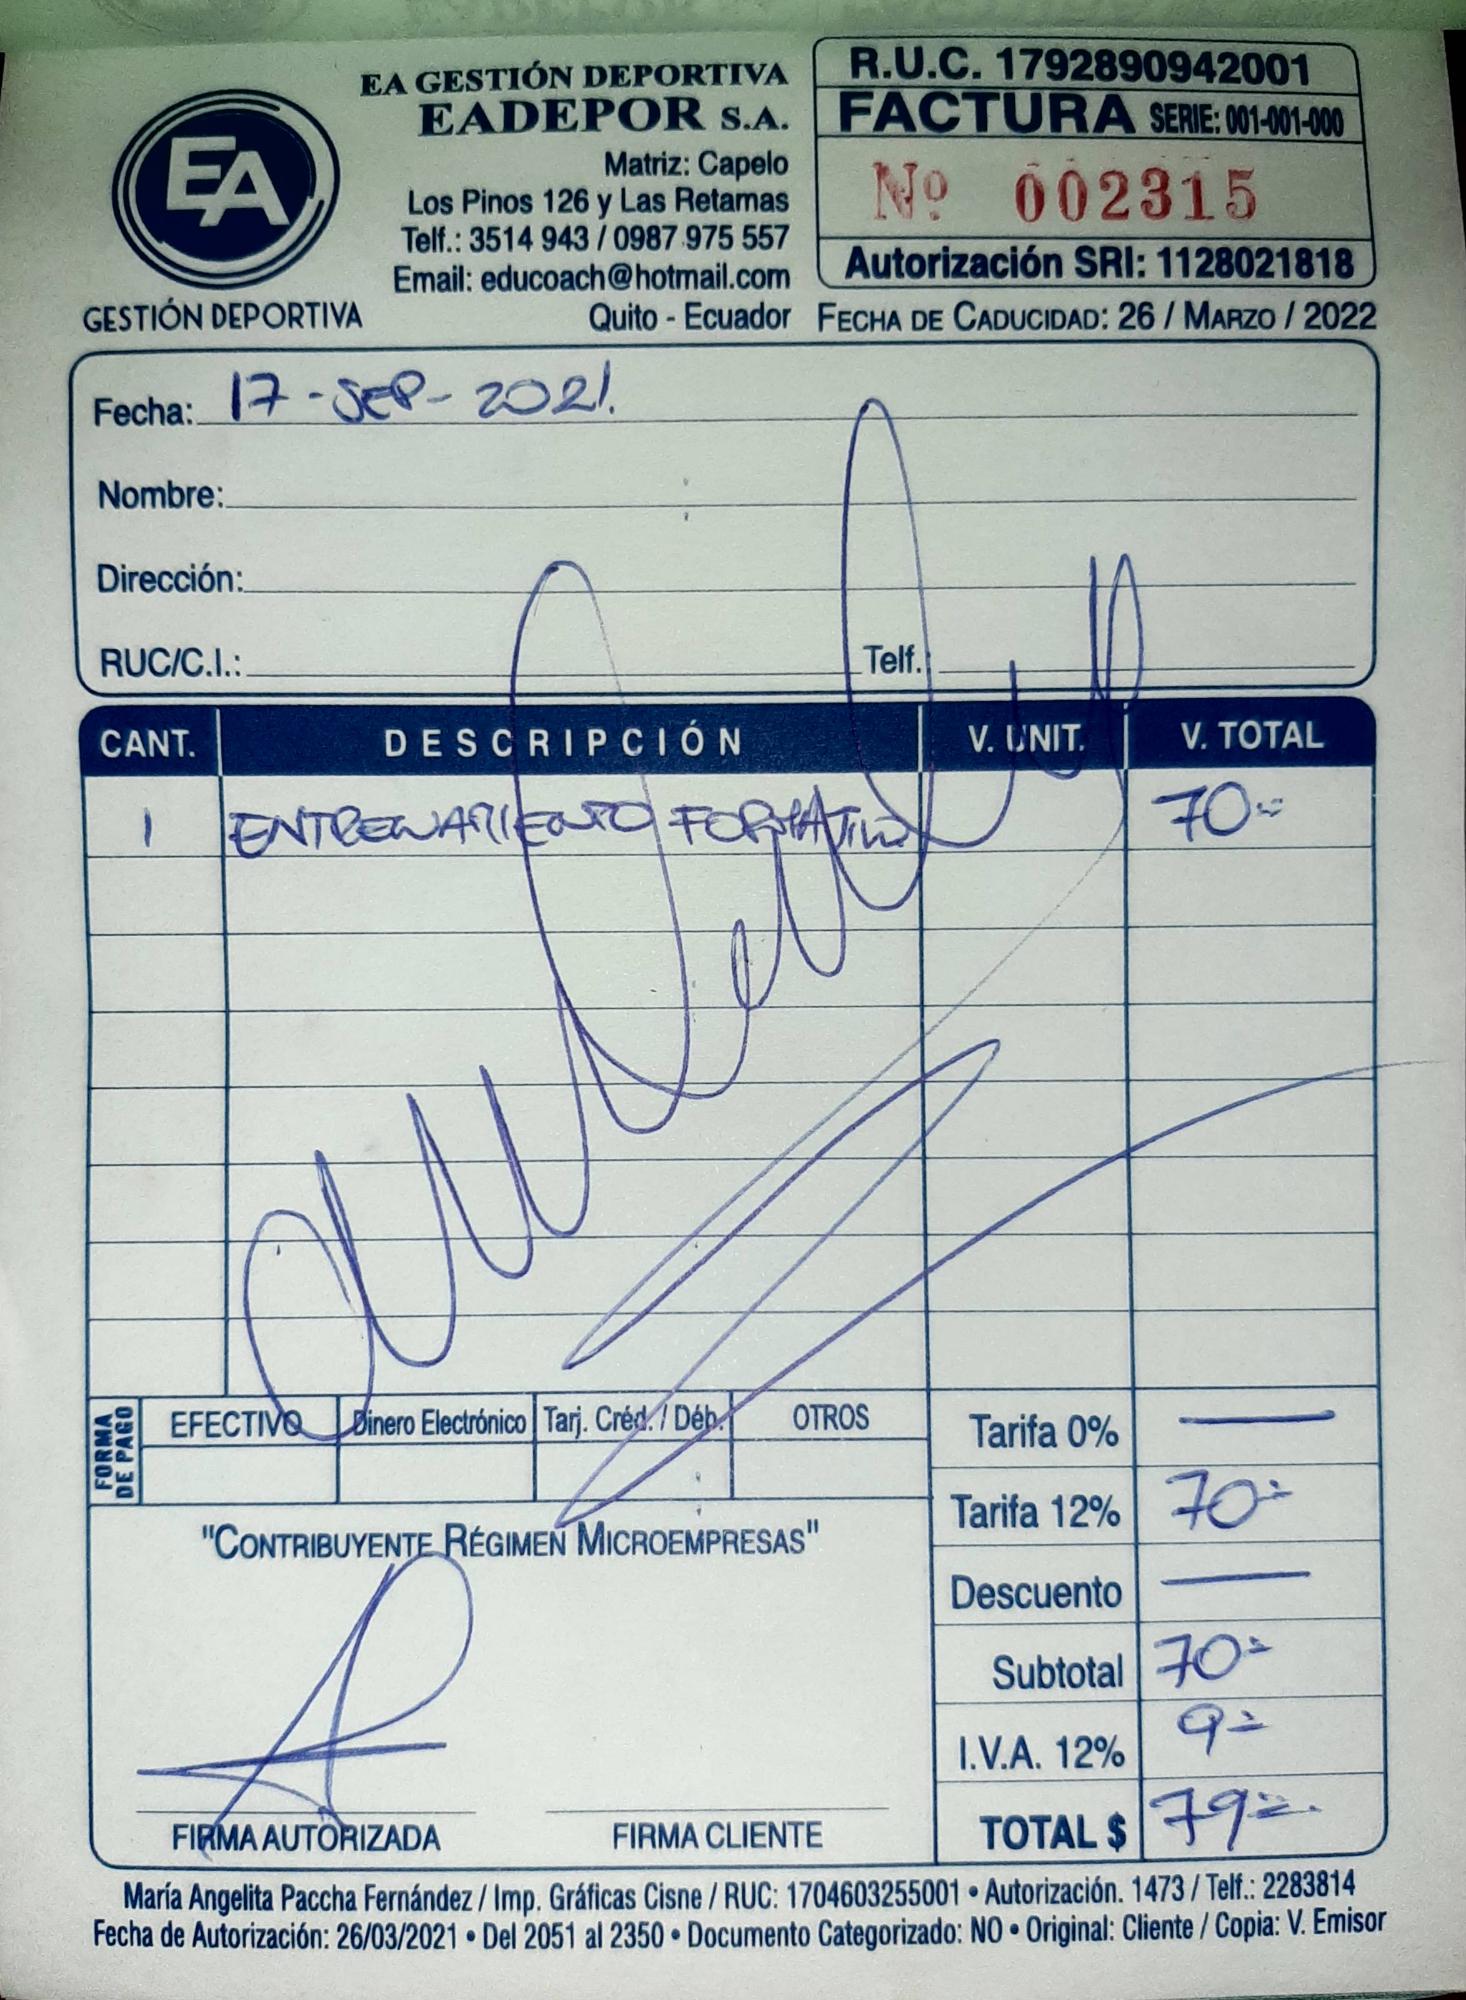 EA
GESTIÓN DEPORTIVA
EA GESTIÓN DEPORTIVA
EADEPOR S.A.
Matriz: Capelo
Los Pinos 126 y Las Retamas
Telf.: 3514 943 / 0987 975 557
Email: educoach@hotmail.com
Quito - Ecuador
R.U.C. 1792890942001
FACTURA SERIE: 001-001-000
Nº 002315
Autorización SRI: 1128021818
FECHA DE CADUCIDAD: 26 / MARZO / 2022
Fecha: 17-SEP-2021.
Nombre:
Dirección:
RUC/C.I.: Telf.
CANT. DESCRIPCIÓN V. UNIT. V. TOTAL
1 ENTRENAMIENTO FORMATIVO 70=
FORMA DE PAGO
EFECTIVO Dinero Electrónico Tarj. Créd. / Déb. OTROS
Tarifa 0% —
Tarifa 12% 70=
Descuento —
Subtotal 70=
I.V.A. 12% 9=
TOTAL $ 79=.
"CONTRIBUYENTE RÉGIMEN MICROEMPRESAS"
FIRMA AUTORIZADA FIRMA CLIENTE
María Angelita Paccha Fernández / Imp. Gráficas Cisne / RUC: 1704603255001 • Autorización. 1473 / Telf.: 2283814
Fecha de Autorización: 26/03/2021 • Del 2051 al 2350 • Documento Categorizado: NO • Original: Cliente / Copia: V. Emisor